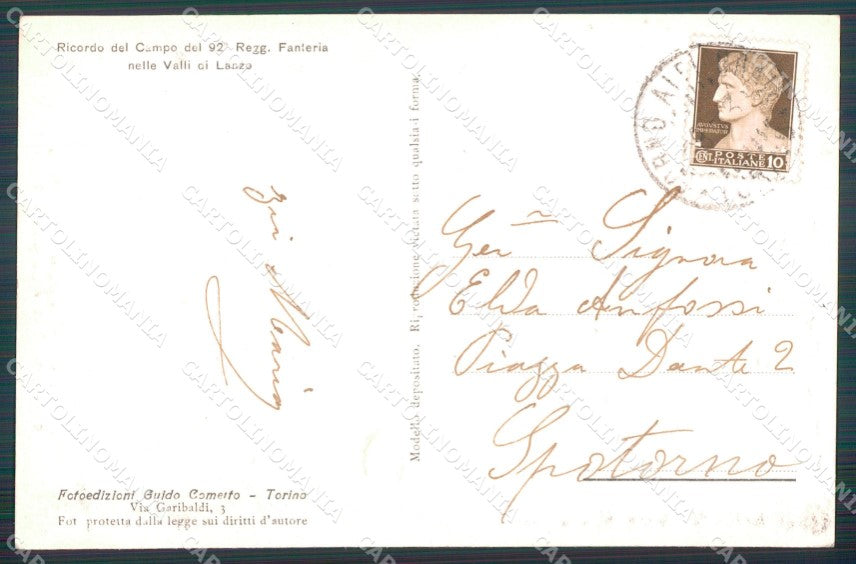 Ricordo del Campo del 92° Regg. Fanteria
nelle Valli di Lanzo
zii Maria
Modello depositato. Riproduzione vietata sotto qualsiasi forma.
AUGVSTVS
IMPERATOR
POSTE
ITALIANE 10
Gen Signora
Elda Anfossi
Piazza Dante 2
Spotorno
Fotoedizioni Guido Cometto - Torino
Via Garibaldi, 3
Fot protetta dalla legge sui diritti d'autore
CARTOLINOMANIA